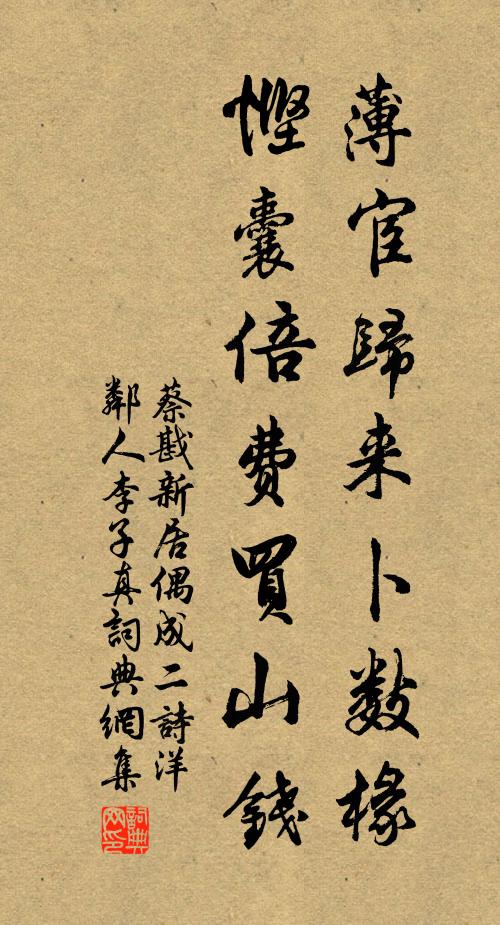 薄宦歸来卜數椽
慳囊倍費買山錢
蔡戡新居偶成二詩洋
鄰人李子真詞典網集
詞典
网印